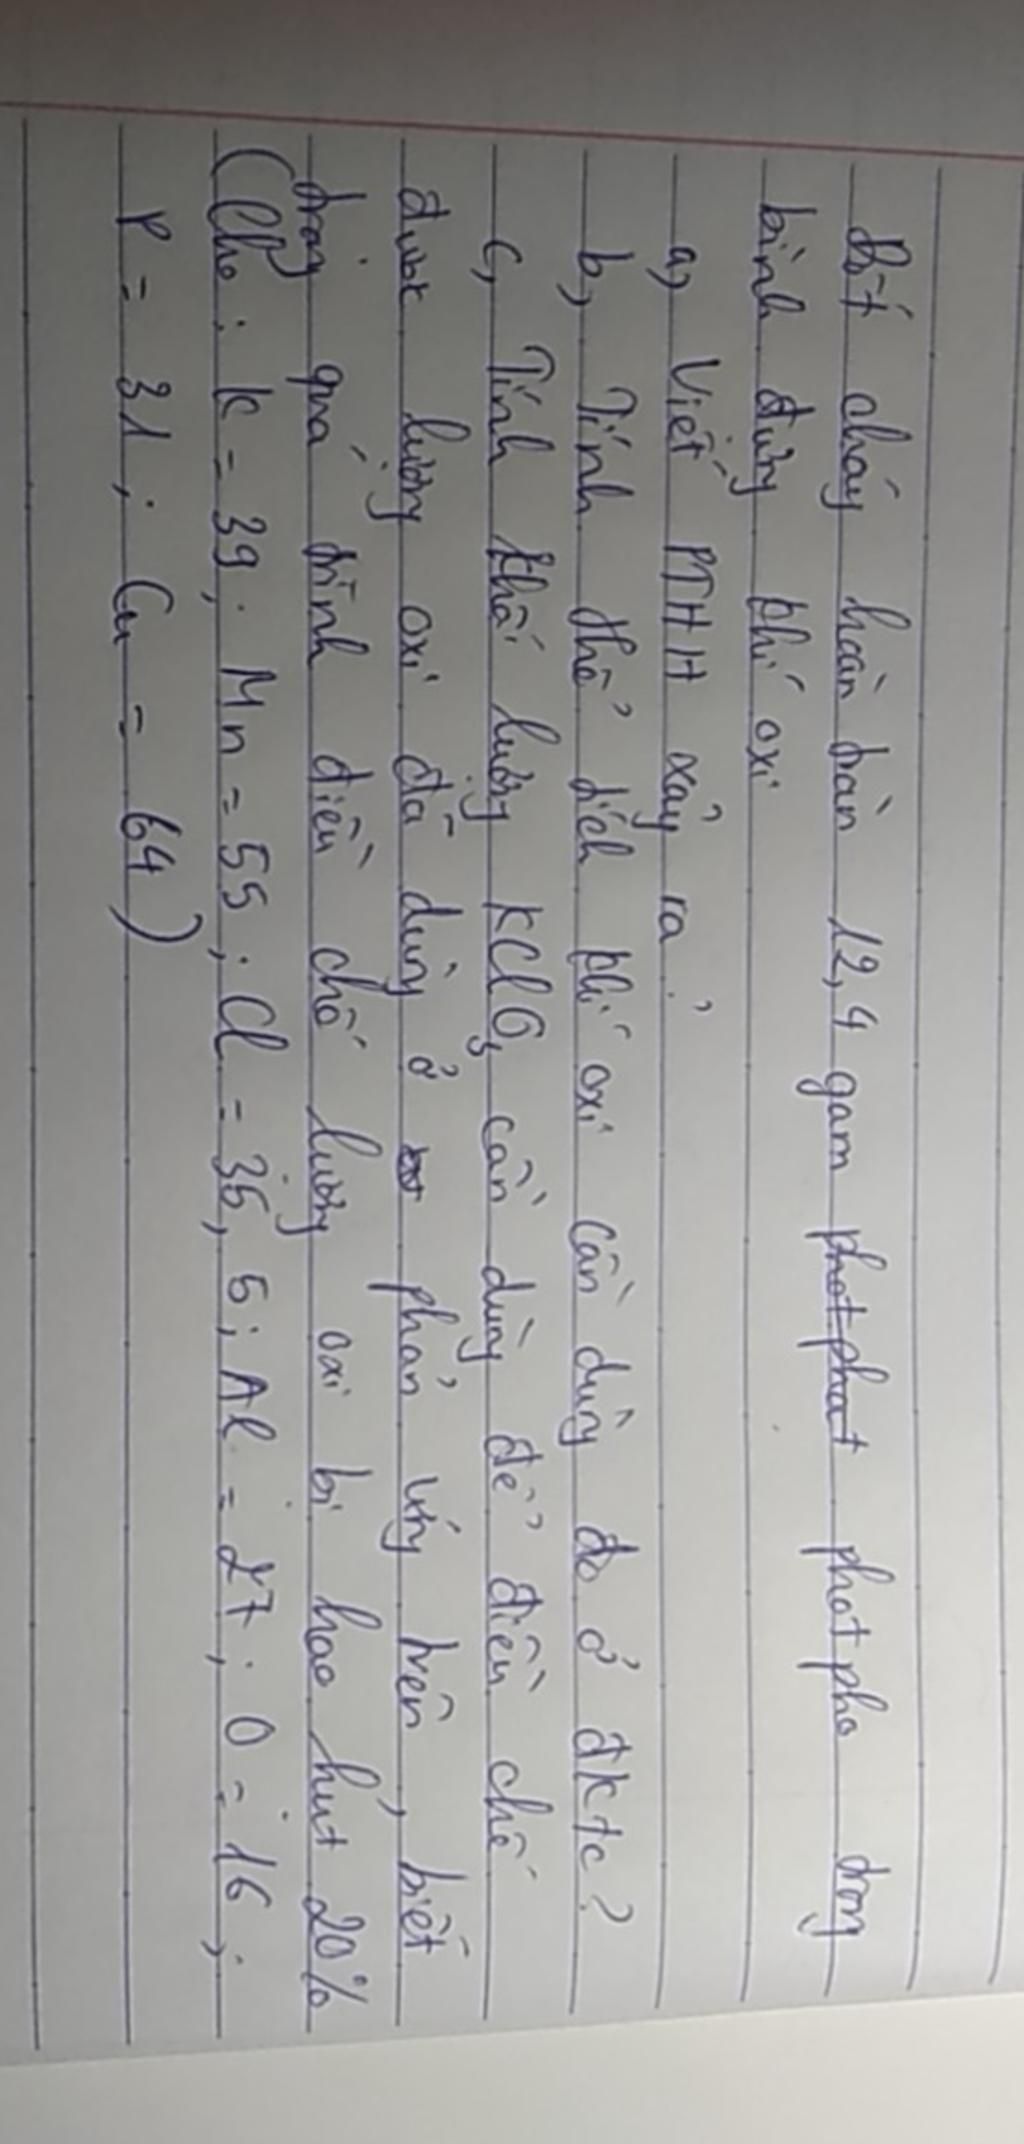 Đốt cháy hoàn toàn 12,4 gam photphat photpho trong
bình đựng khí oxi
a, Viết PTHH xảy ra?
b, Tính thể tích khí oxi cần dùng đo ở đktc?
c, Tính khối lượng KClO3 cần dùng để điều chế
được lượng oxi đã dùng ở phản ứng trên, biết
trong quá trình điều chế lượng oxi bị hao hụt 20%
(Cho: K = 39; Mn = 55; Cl = 35,5; Al = 27; O = 16;
P = 31; Cu = 64)